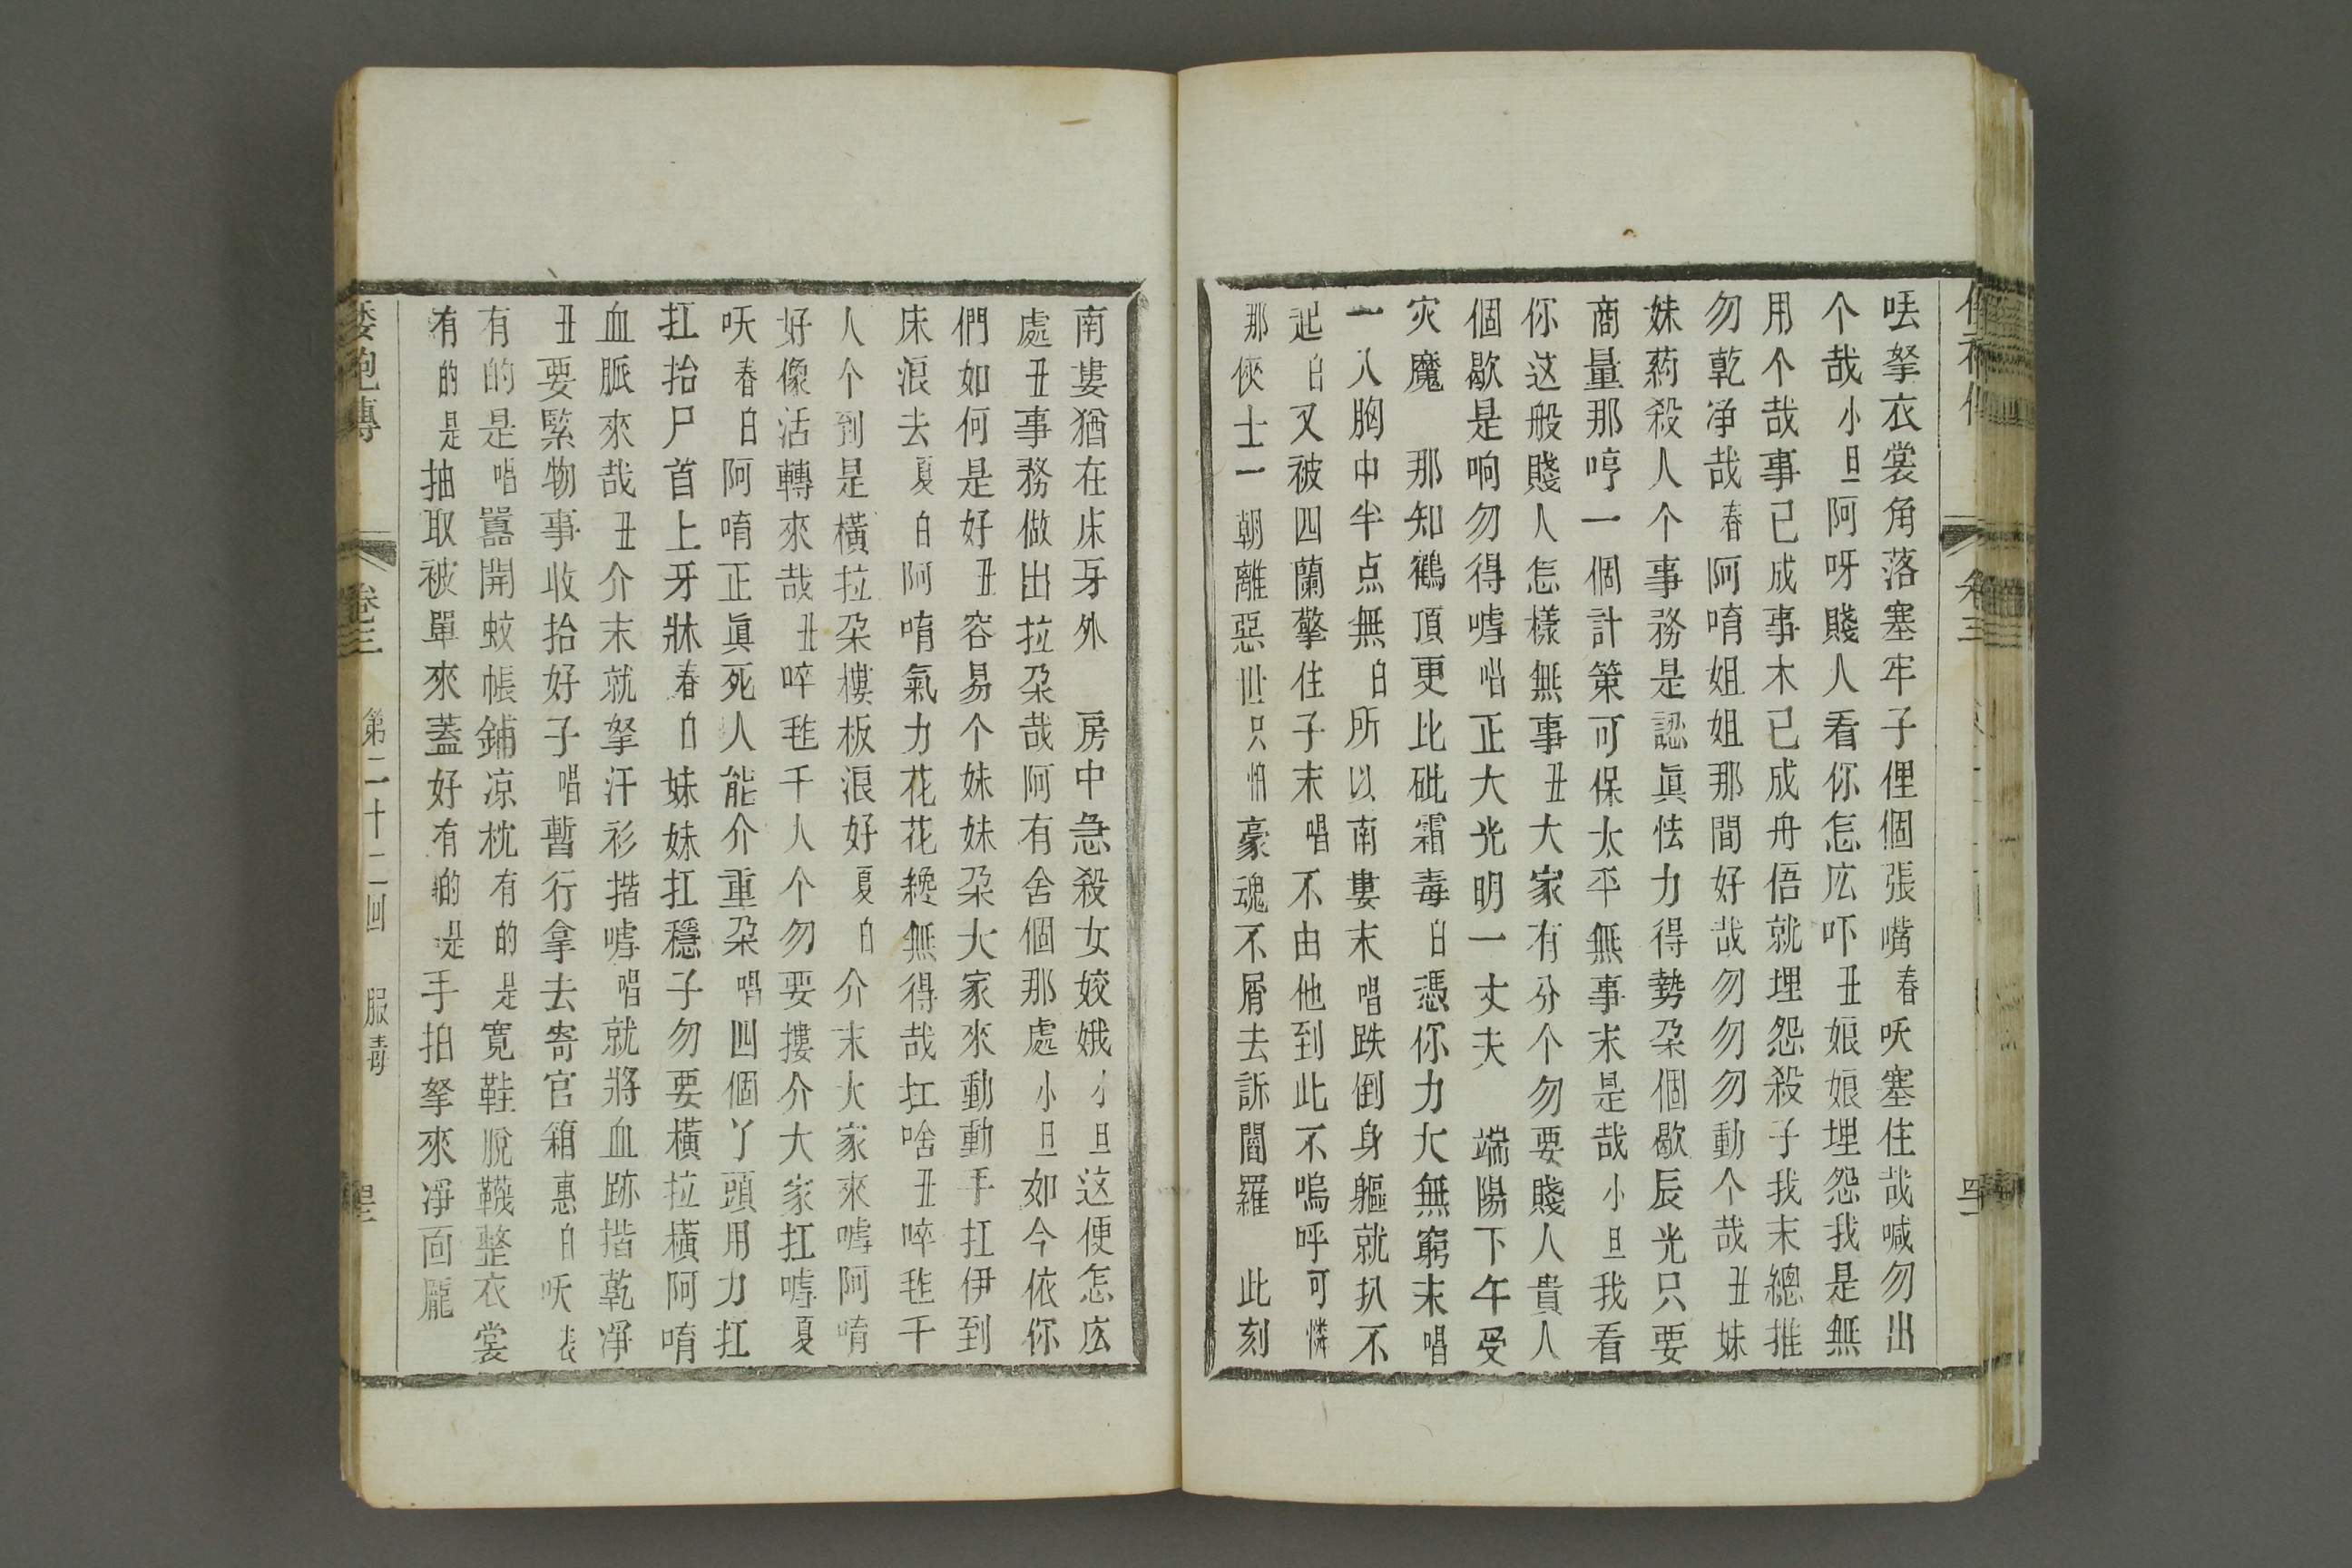 呒拏衣裳角落塞牢子俚個張嘴春呋塞住哉喊勿出
个哉小旦阿呀賤人看你怎広吓丑娘娘埋怨我是無
用个哉事已成事木已成舟俉就埋怨殺子我末總推
勿乾净哉春阿唷姐姐那間好哉勿勿勿動个哉丑妹
妹葯殺人个事務是認眞怯力得勢朶個歇辰光只要
商量那哼一個計策可保太平無事末是哉小旦我看
你这般賤人怎樣無事丑大家有分个勿要賤人貴人
個歇是响勿得嘑唱正大光明一丈夫 端陽下午受
灾魔 那知鶴頂更比砒霜毒白憑你力大無窮末唱
一入胸中半点無白所以南婁末唱跌倒身軀就扒不
起白又被四蘭擎住子末唱不由他到此不嗚呼可憐
那俠士一朝離惡世只怕豪魂不屑去訴閻羅 此刻
南婁猶在床牙外 房中急殺女姣娥小旦这便怎広
處丑事務做出拉朶哉阿有舍個那處小旦如今依你
們如何是好丑容易个妹妹朶大家來動動手扛伊到
床浪去夏白阿唷氣力花花纔無得哉扛啥丑啐毴千
人个到是橫拉朶樓板浪好夏白介末大家來嘑阿唷
好像活轉來哉丑啐毴千人个勿要摟介大家扛嘑夏
呋春白阿唷正眞死人能介重朶唱四個丫頭用力扛
扛抬尸首上牙牀春白妹妹扛穩子勿要橫拉橫阿唷
血脈來哉丑介末就拏汗衫揩嘑唱就將血跡揩乾淨
丑要緊物事收拾好子唱暫行拿去寄官箱惠白呋衣
有的是唱囂開蚊帳鋪凉枕有的是寛鞋脫韈整衣裳
有的是抽取被單來蓋好有的是手拍拏來凈面龐
倭袍傳 卷三 第二十二回 服毒